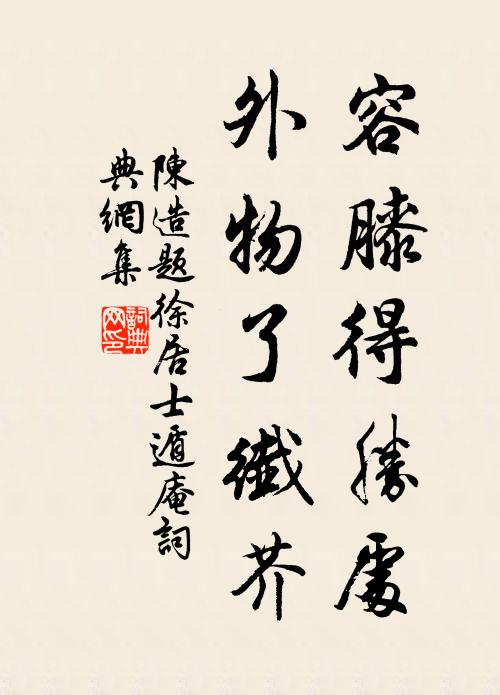 容膝得勝處
外物了纖芥
陳造題徐居士遁庵詞
典網集
詞典网印